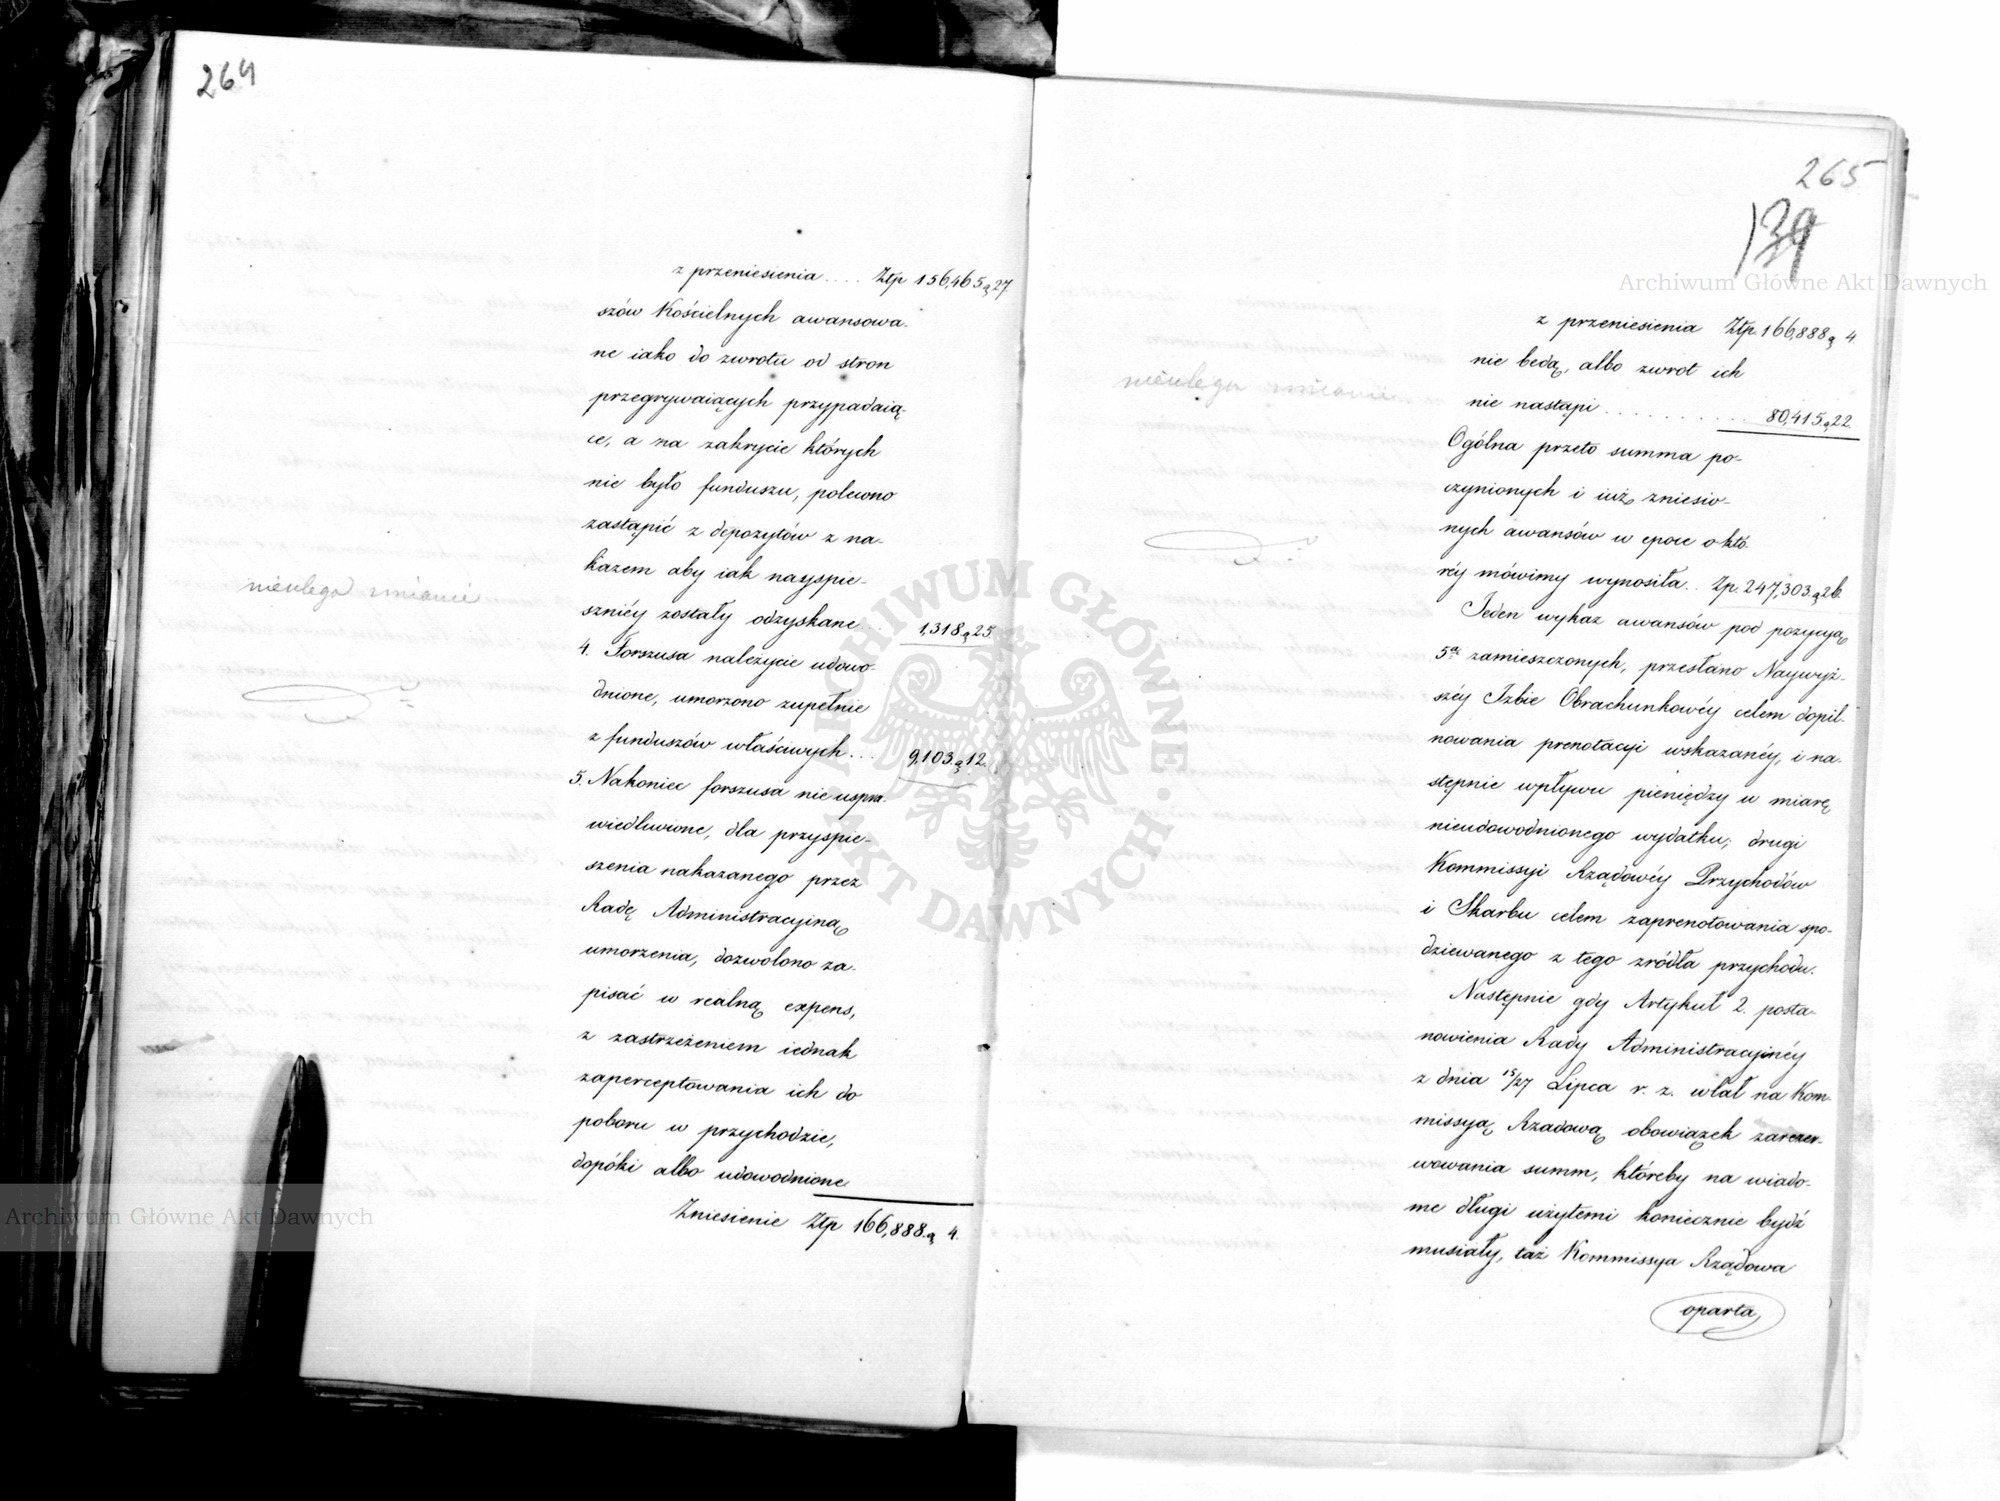 264
z przeniesienia .... Złp 156,465 g 27
szów Kościelnych awansowa-
ne iako do zwrotu od stron
przegrywaiących przypadaią-
ce, a na zakrycie których
nie było funduszu, polecono
zastąpić z depozytów z na-
kazem aby iak nayspie-
szniéy zostały odzyskane .. 1,318 g 25.
4. Forszusa należycie udowo-
dnione, umorzono zupełnie
z funduszów właściwych ... 9,103 g 12.
5. Nakoniec forszusa nie uspra-
wiedliwione, dla przyspie-
szenia nakazanego przez
Radę Administracyiną
umorzenia, dozwolono za-
pisać w realną expens,
z zastrzeżeniem iednak
zaperceptowania ich do
poboru w przychodzie,
dopóki albo udowodnione
Zniesienie Złp 166,888 g 4.
nieulega zmianie
265
139
z przeniesienia Złp. 166,888 g 4.
nie będą, albo zwrot ich
nie nastąpi .......... 80,415 g 22.
Ogólna przeto summa po-
czynionych i iuż zniesio-
nych awansów w epoce o któ-
réy mówimy wynosiła .. Zp. 247,303 g 26.
Jeden wykaz awansów pod pozycyą
5ą zamieszczonych, przesłano Naywyż-
széy Izbie Obrachunkowéy celem dopil-
nowania prenotacyi wskazanéy, i na-
stępnie wpływu pieniędzy w miarę
nieudowodnionego wydatku; drugi
Kommissyi Rządowéy Przychodów
i Skarbu celem zaprenotowania spo-
dziewanego z tego zródła przychodu.
Następnie gdy Artykuł 2. posta-
nowienia Rady Administracyinéy
z dnia 15/27 Lipca r. z. wlał na Kom-
missyą Rządową obowiązek zarezer-
wowania summ, któreby na wiado-
me długi użytemi koniecznie bydź
musiały, taż Kommissya Rządowa
oparta
nieulega zmianie
Archiwum Główne Akt Dawnych
Archiwum Główne Akt Dawnych
ARCHIWUM GŁÓWNE AKT DAWNYCH